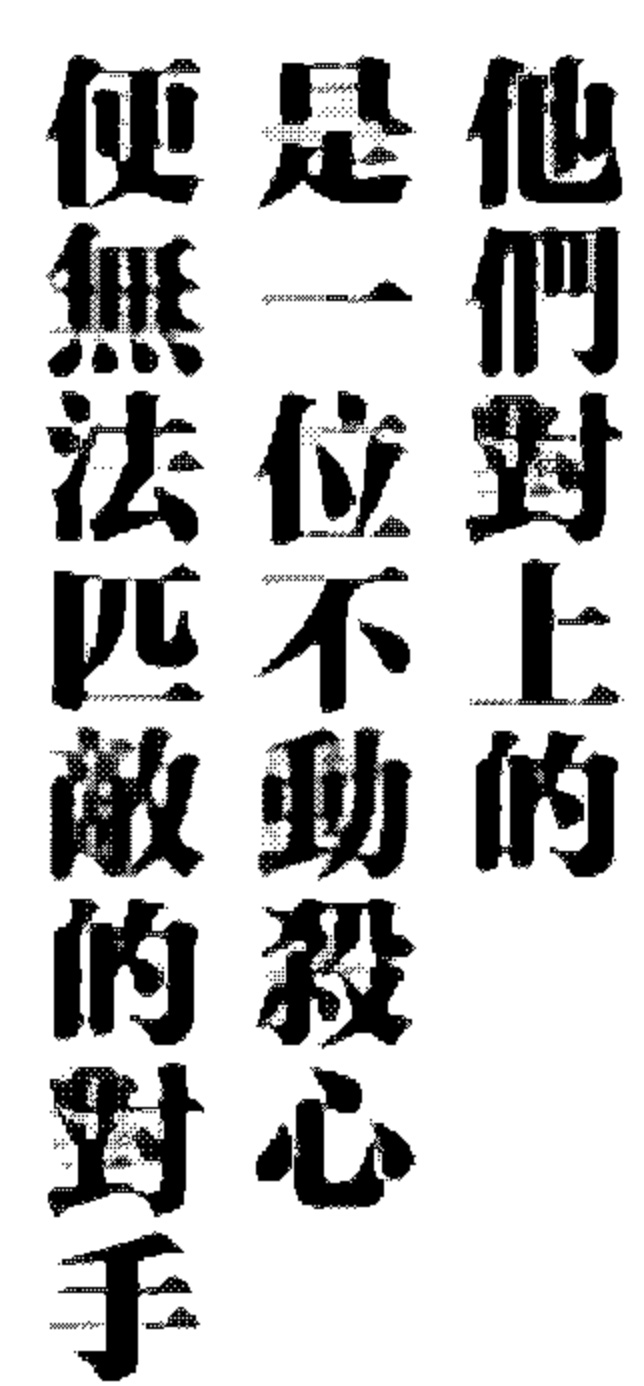 他們對上的
是一位不動殺心
便無法匹敵的對手